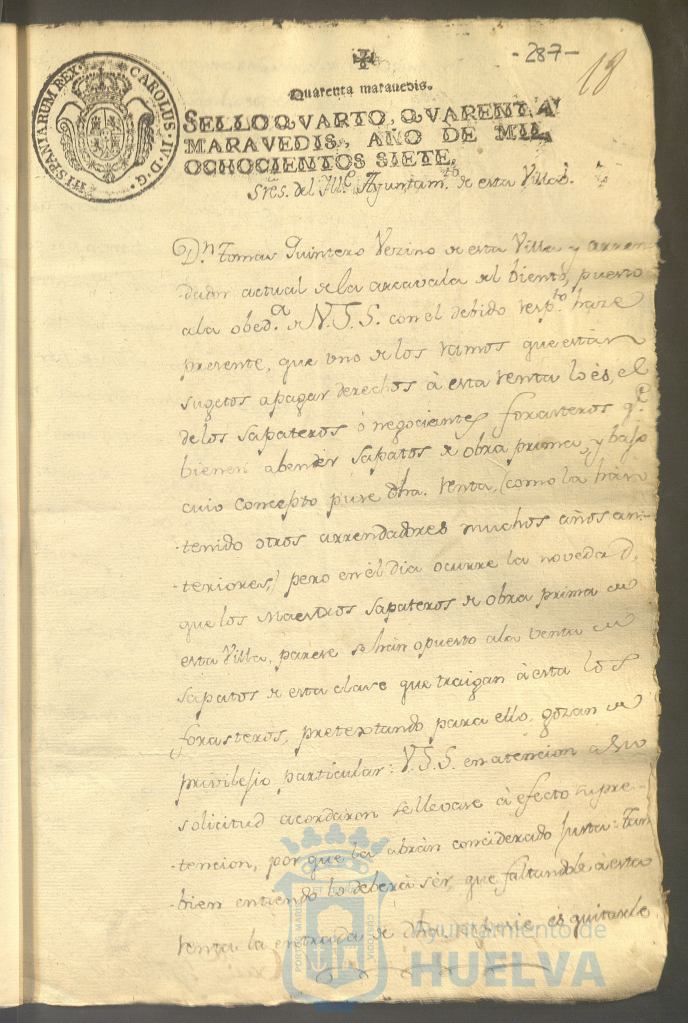 -287-
18
Quarenta maravedis.
SELLO QVARTO, QVARENTA
MARAVEDIS, AÑO DE MIL
OCHOCIENTOS SIETE.
CAROLUS·IV·D·G·HISPANIARUM REX
Sres. del Ille. Ayuntamto. de esta Villa.
Dn. Tomas Quintero Vezino de esta Villa y arren-
dador actual de la arcavala del biento, puesto
ala obeda. de V.S.S. con el debido respto. haze
presente, que uno de los ramos que están
sugetos apagar derechos à esta renta lo es, el
de los sapateros ò negociantes forasteros qe.
bienen abender sapatos de obra prima, y bajo
cuio concepto puse dha. renta, (como la hàn
tenido otros arrendadores muchos años an-
teriores,) pero en èl dia ocurre la novedad,
que los Maestros sapateros de obra prima de
esta Villa, parese se hàn opuesto ala venta de
sapatos de esta clase que traigan à esta los
forasteros, pretextando para ello, gozan de
privilejio particular: V.S.S. en atencion a su
solicitud acordaron se llevase à efecto su pre-
tencion, por que la abràn conciderado justa: Tam-
bien entiendo lo deberà sèr, que faltandole à esta
renta la entrada de dha. especie, es quitarle
Ayuntamiento de
HUELVA